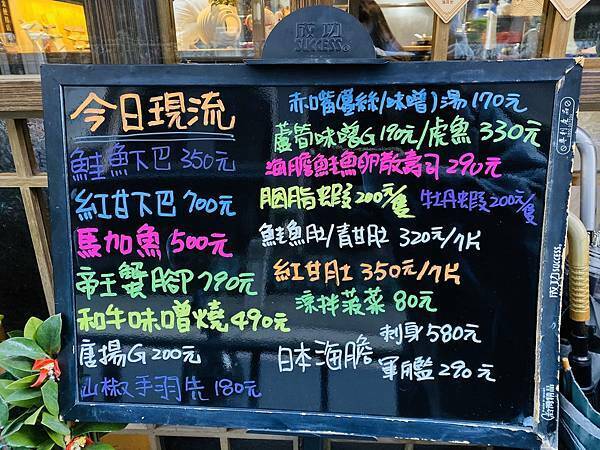 成功
SUCCESS
今日現流
鮭魚下巴 350元
紅甘下巴 700元
馬加魚 500元
帝王蟹腳 790元
和牛味噌燒 490元
唐揚G 200元
山椒手羽先 180元
赤嘴(薑絲/味噌)湯 170元
蘆筍味噌G 190元/虎魚 330元
海膽鮭魚卵散壽司 290元
胭脂蝦 200元/隻
牡丹蝦 200元/隻
鮭魚肚/青甘肚 320元/7片
紅甘肚 350元/7片
涼拌菠菜 80元
日本海膽
刺身 580元
軍艦 290元
成功 SUCCESS